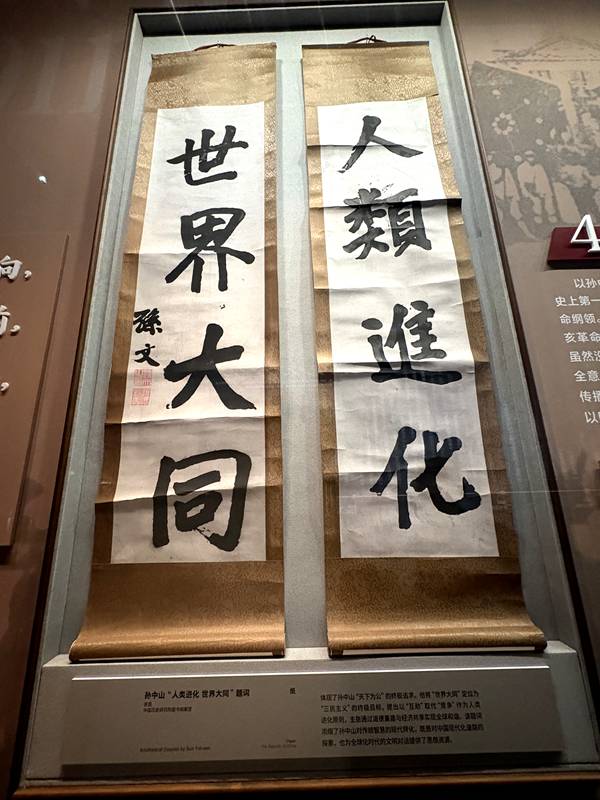 人類進化
世界大同
孫文
向，
孙中山“人类进化 世界大同”题词
民国
纸
体现了孙中山“天下为公”的终极追求。他将“世界大同”定位为
“三民主义”的终极目标，提出以“互助”取代“竞争”作为人类
进化原则，主张通过道德重建与经济共享实现全球和谐。该题词
浓缩了孙中山对传统智慧的现代转化，既是对中国现代化道路的
探索，也为全球化时代的文明对话提供了思想资源。
Paper
4
以孙中
史上第一
命纲领。
亥革命
虽然没
全意
传播
以